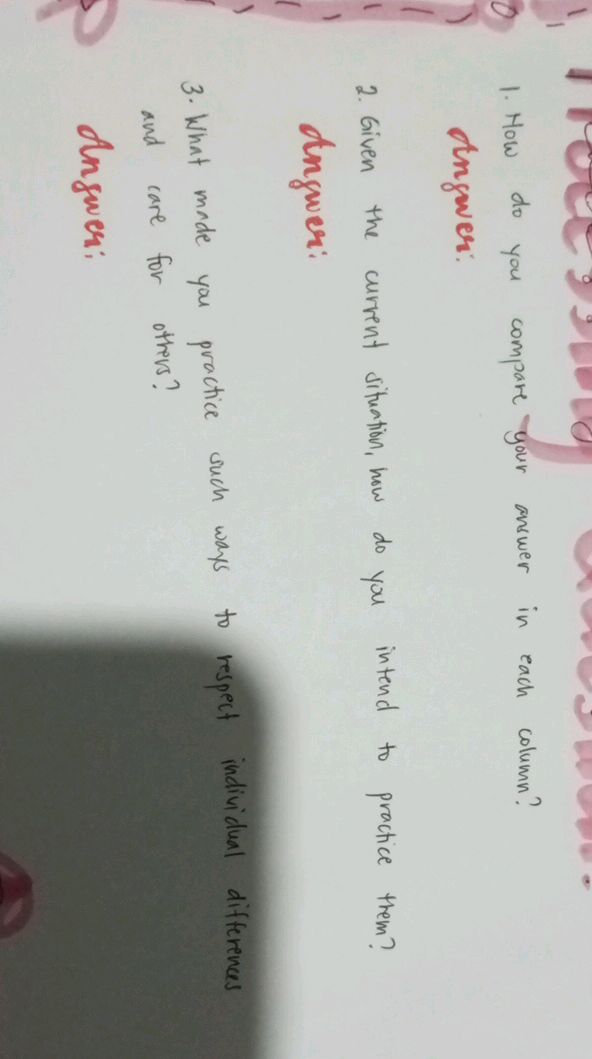 1. How do you compare your answer in each column?
Answer:
2. Given the current situation, how do you intend to practice them?
Answer:
3. What made you practice such ways to respect individual differences
and care for others?
Answer: